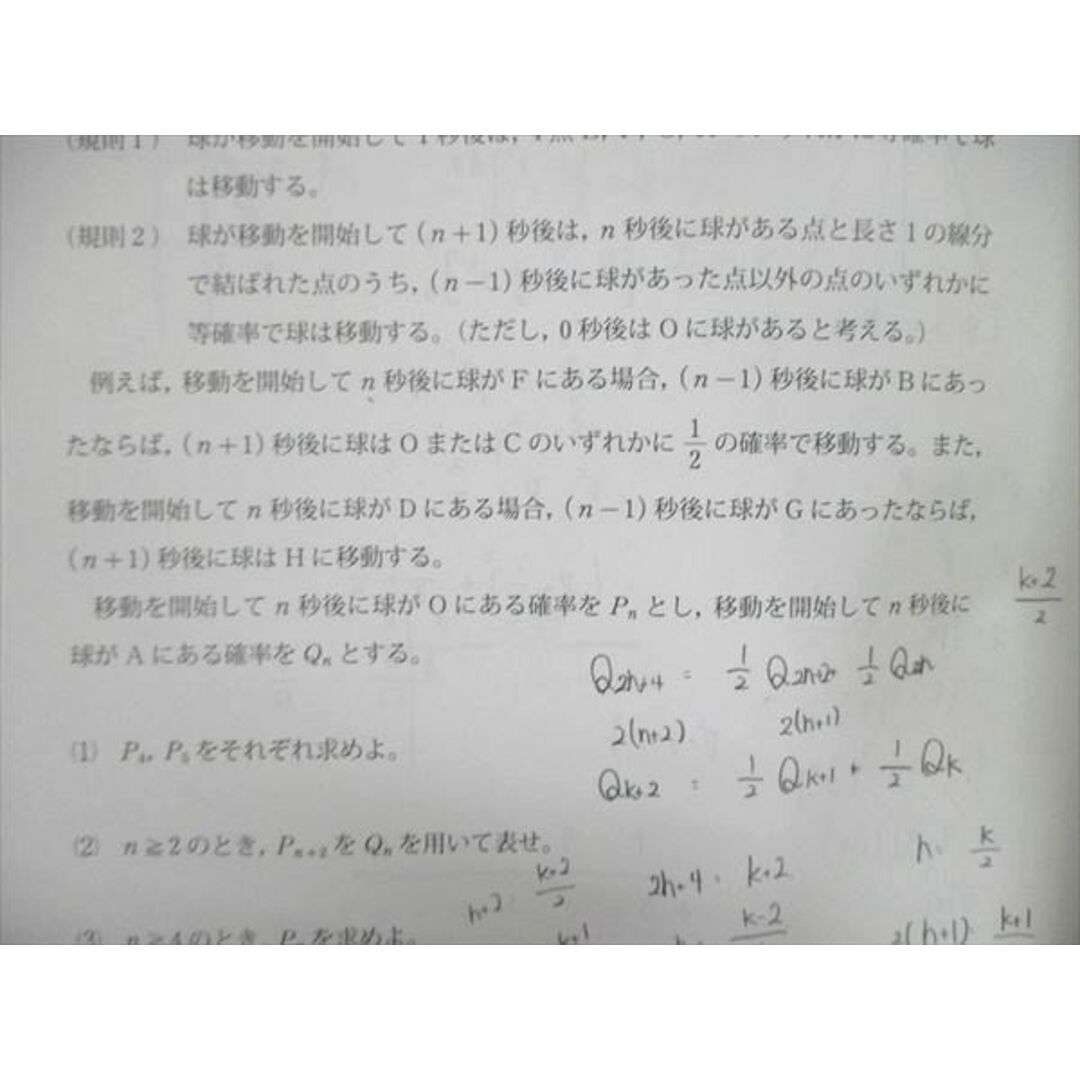 (規則1) 球が移動を開始して1秒後は,
は移動する。
(規則2) 球が移動を開始して(n+1)秒後は, n秒後に球がある点と長さ1の線分
で結ばれた点のうち, (n-1)秒後に球があった点以外の点のいずれかに
等確率で球は移動する。(ただし, 0秒後はOに球があると考える。)
例えば, 移動を開始してn秒後に球がFにある場合, (n-1)秒後に球がBにあっ
たならば, (n+1)秒後に球はOまたはCのいずれかに 1/2 の確率で移動する。また,
移動を開始してn秒後に球がDにある場合, (n-1)秒後に球がGにあったならば,
(n+1)秒後に球はHに移動する。
k+2/2
移動を開始してn秒後に球がOにある確率をPnとし, 移動を開始してn秒後に
球がAにある確率をQnとする。
Q2n+4 = 1/2 Q2n+2+ 1/2 Q2n
2(n+2) 2(n+1)
(1) P4, P5をそれぞれ求めよ。
Qk+2 = 1/2 Qk+1 + 1/2 Qk
(2) n≧2のとき, Pn+2をQnを用いて表せ。
n= k/2
n+2= k+2/2 2n+4= k+2
(3) n≧4のとき, Pnを求めよ。
k+1 k-2 2(n+1)= k+1